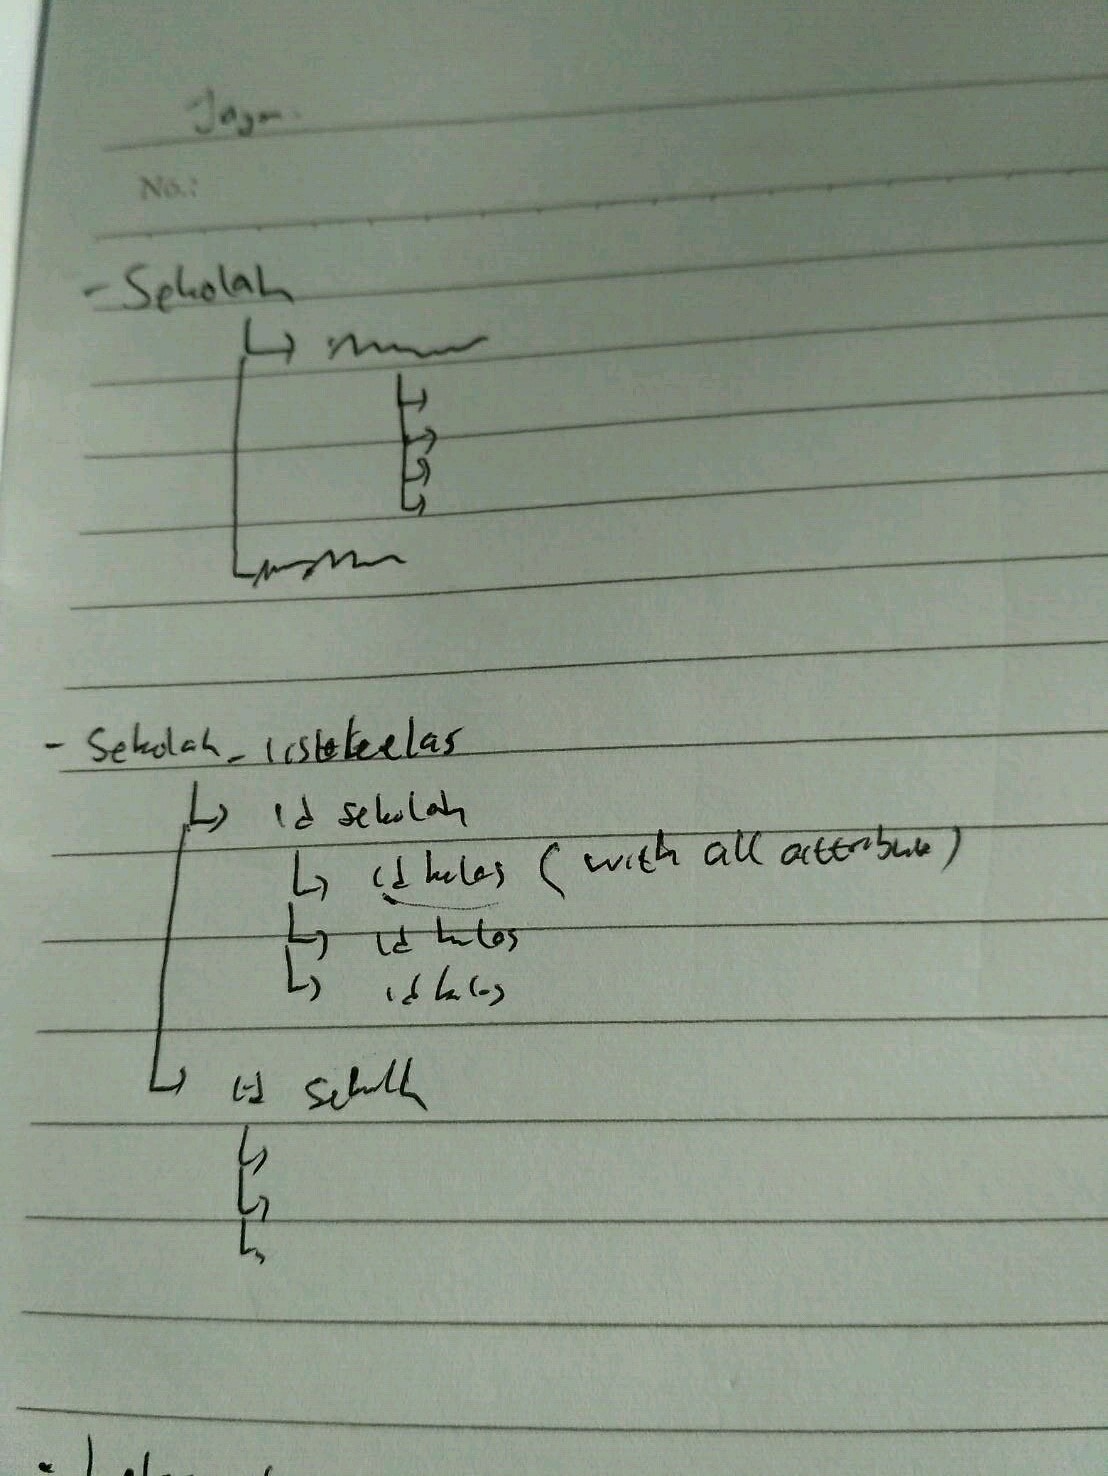 No.:
- Sekolah
- Sekolah_listkelas
id sekolah
id kelas (with all attribute)
id kelas
id kelas
id